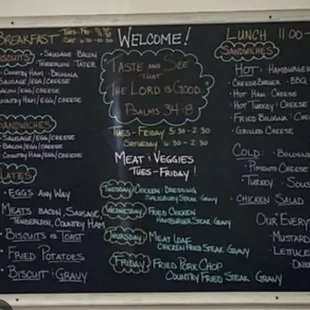 BREAKFAST
TUES-FRI 5:30-
SAT 6:30-10:30
BISCUITS
• SAUSAGE BACON
TENDERLOIN TATER
• COUNTRY HAM • BOLOGNA
SAUSAGE/EGG/CHEESE
BACON/EGG/CHEESE
COUNTRY HAM/EGG/CHEESE
SANDWICHES
• SAUSAGE/EGG/CHEESE
• BACON/EGG/CHEESE
• COUNTRY HAM/EGG/CHEESE
PLATES
• EGGS ANY WAY
MEATS BACON, SAUSAGE,
TENDERLOIN, COUNTRY HAM
• BISCUITS OR TOAST
• FRIED POTATOES
• BISCUIT & GRAVY
WELCOME!
"TASTE AND SEE
THAT
THE LORD IS GOOD"
PSALMS 34:8
TUES-FRIDAY 5:30-2:30
SATURDAY 6:30-2:30
MEAT & VEGGIES
TUES-FRIDAY!
TUESDAY CHICKEN & DRESSING
SALISBURY STEAK GRAVY
WEDNESDAY FRIED CHICKEN
HAMBURGER STEAK GRAVY
THURSDAY MEAT LOAF
CHICKEN FRIED STEAK GRAVY
FRIDAY FRIED PORK CHOP
COUNTRY FRIED STEAK GRAVY
LUNCH 11:00-
SANDWICHES
HOT: HAMBURGER
• CHEESEBURGER • BBQ
• HOT HAM / CHEESE
• HOT TURKEY / CHEESE
• FRIED BOLOGNA / CHEESE
• GRILLED CHEESE
COLD: • BOLOGNA
• PIMENTO CHEESE
• TURKEY • SOUSE
• CHICKEN SALAD
OUR EVERY
• MUSTARD
• LETTUCE
ONION